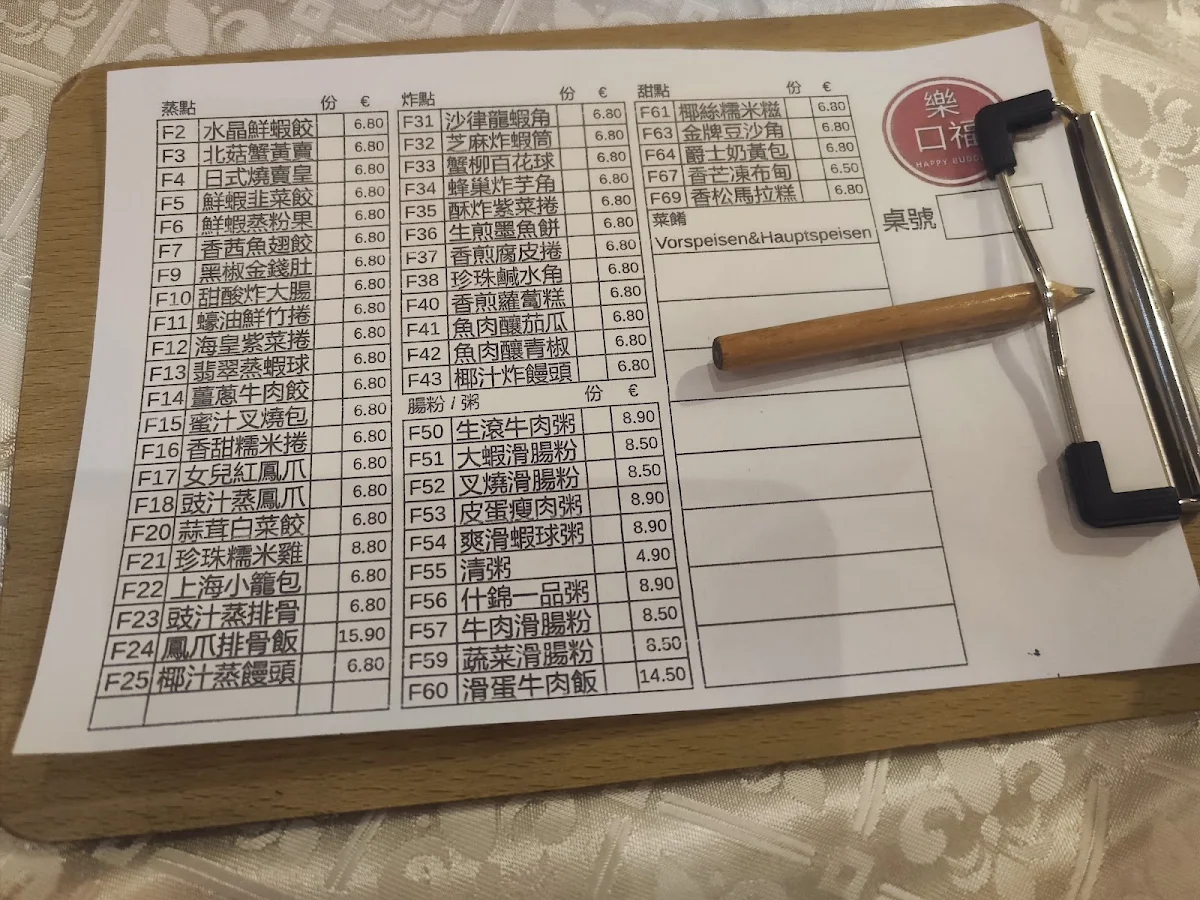 蒸點 份 €
F2 水晶鮮蝦餃 6.80
F3 北菇蟹黃賣 6.80
F4 日式燒賣皇 6.80
F5 鮮蝦韮菜餃 6.80
F6 鮮蝦蒸粉果 6.80
F7 香茜魚翅餃 6.80
F9 黑椒金錢肚 6.80
F10 甜酸炸大腸 6.80
F11 蠔油鮮竹捲 6.80
F12 海皇紫菜捲 6.80
F13 翡翠蒸蝦球 6.80
F14 薑蔥牛肉餃 6.80
F15 蜜汁叉燒包 6.80
F16 香甜糯米捲 6.80
F17 女兒紅鳳爪 6.80
F18 豉汁蒸鳳爪 6.80
F20 蒜茸白菜餃 6.80
F21 珍珠糯米雞 8.80
F22 上海小籠包 6.80
F23 豉汁蒸排骨 6.80
F24 鳳爪排骨飯 15.90
F25 椰汁蒸饅頭 6.80
炸點 份 €
F31 沙律龍蝦角 6.80
F32 芝麻炸蝦筒 6.80
F33 蟹柳百花球 6.80
F34 蜂巢炸芋角 6.80
F35 酥炸紫菜捲 6.80
F36 生煎墨魚餅 6.80
F37 香煎腐皮捲 6.80
F38 珍珠鹹水角 6.80
F40 香煎蘿蔔糕 6.80
F41 魚肉釀茄瓜 6.80
F42 魚肉釀青椒 6.80
F43 椰汁炸饅頭 6.80
腸粉 / 粥 份 €
F50 生滾牛肉粥 8.90
F51 大蝦滑腸粉 8.50
F52 叉燒滑腸粉 8.50
F53 皮蛋瘦肉粥 8.90
F54 爽滑蝦球粥 8.90
F55 清粥 4.90
F56 什錦一品粥 8.90
F57 牛肉滑腸粉 8.50
F59 蔬菜滑腸粉 8.50
F60 滑蛋牛肉飯 14.50
甜點 份 €
F61 椰絲糯米糍 6.80
F63 金牌豆沙角 6.80
F64 爵士奶黃包 6.80
F67 香芒凍布甸 6.50
F69 香松馬拉糕 6.80
菜餚
Vorspeisen&Hauptspeisen
樂
口福
HAPPY
桌號